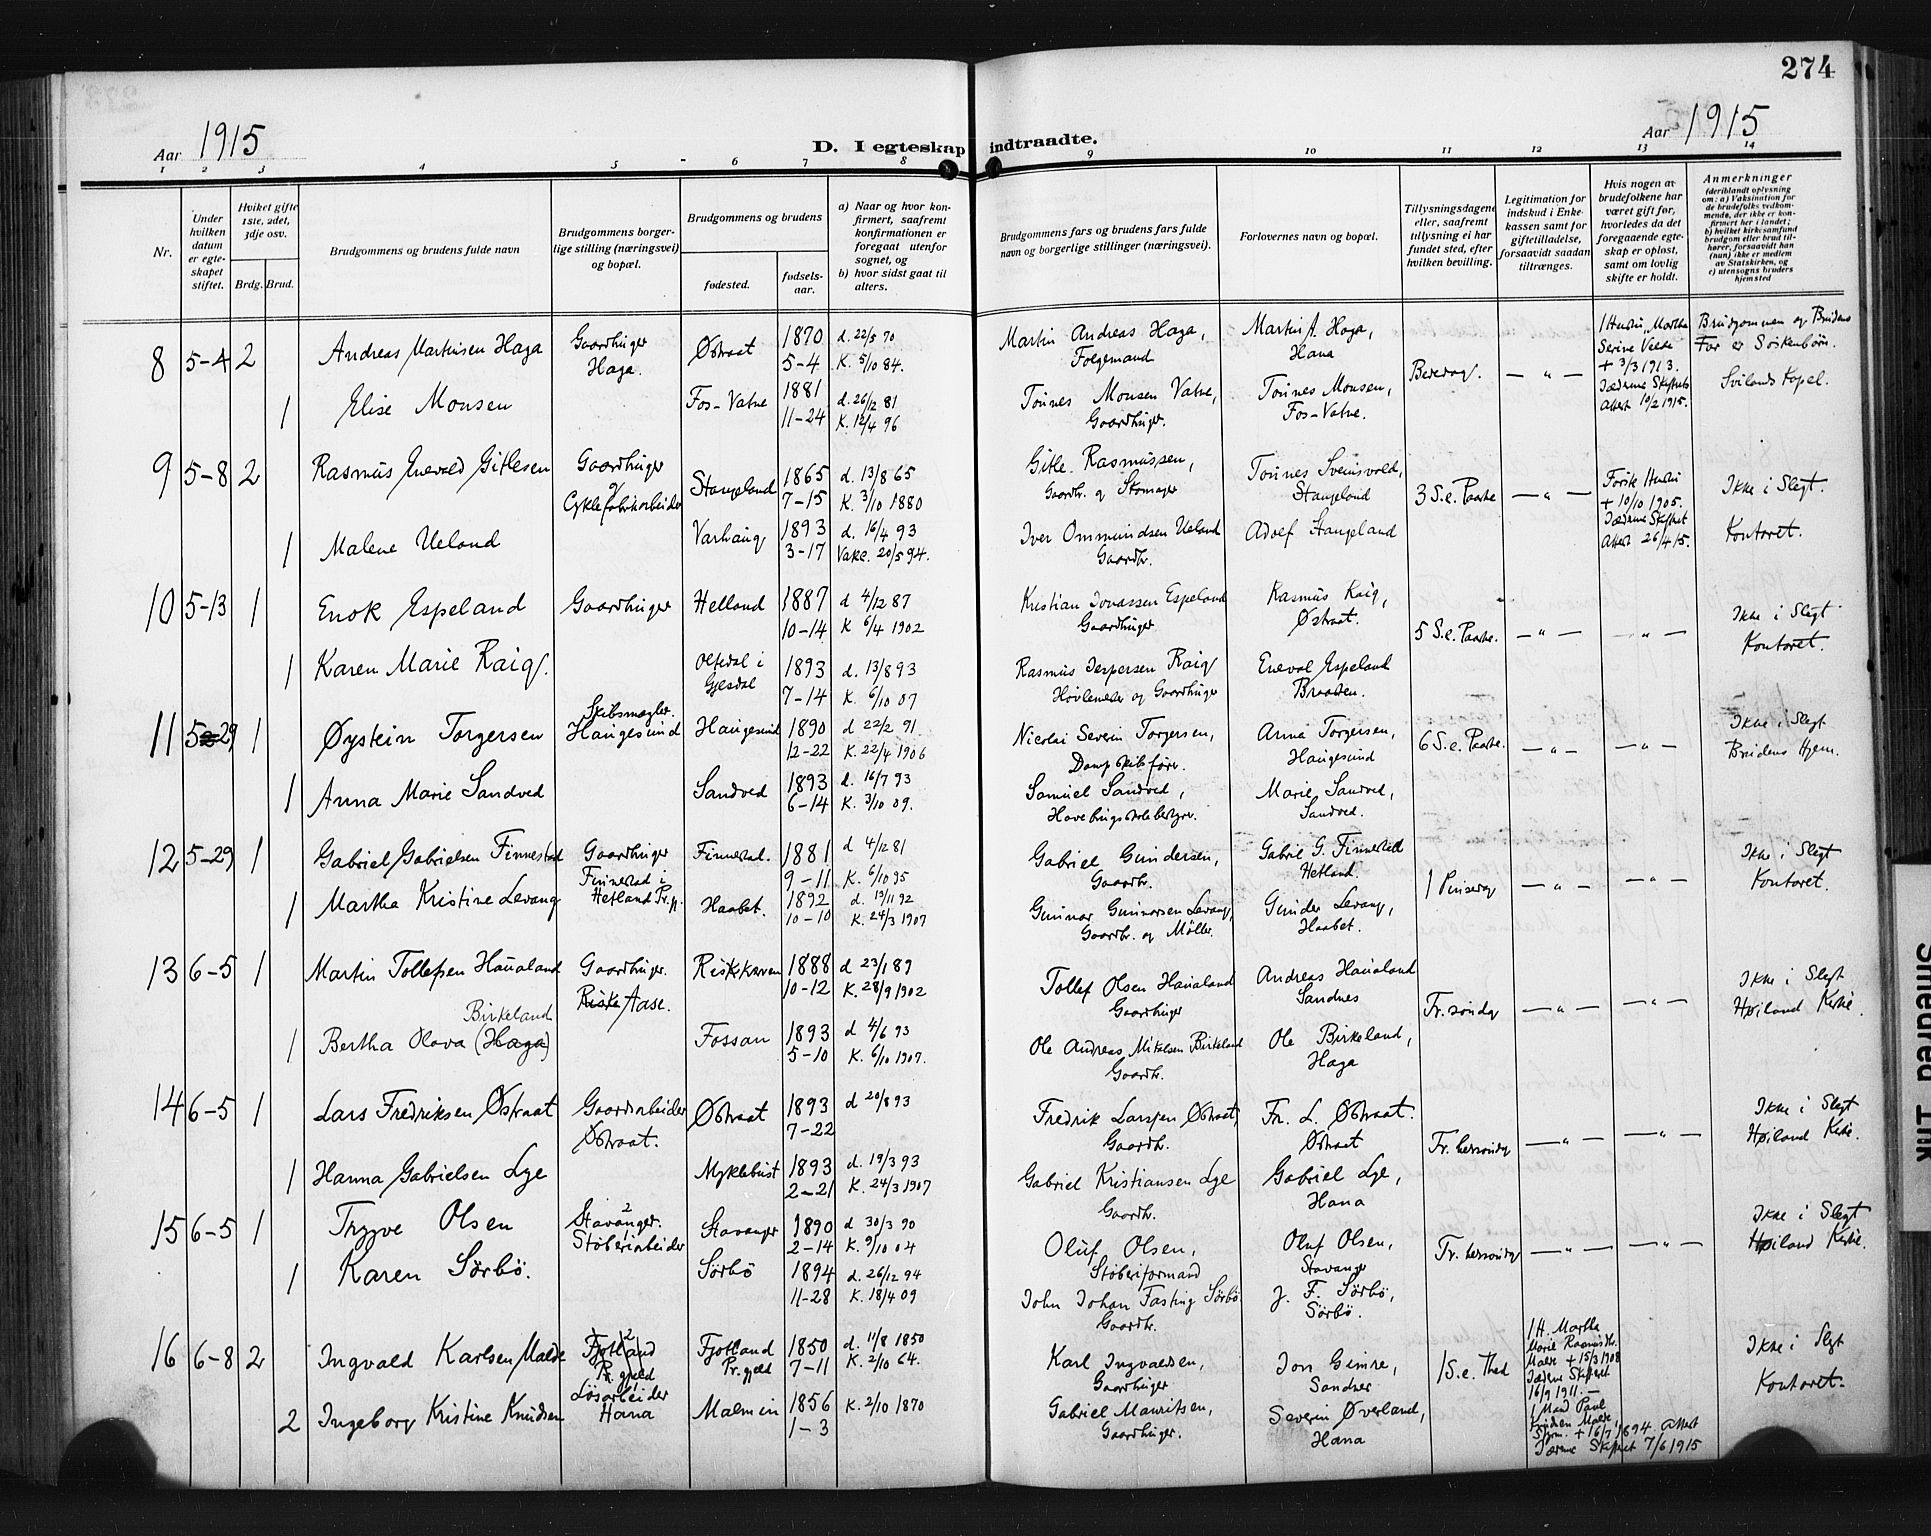 274
Aar 1915
D. I egteskap indtraadte.
Aar 1915
1 2 3 4 5 6 7 8 9 10 11 12 13 14
Nr.
Under hvilken datum er egteskapet stiftet.
Hvilket gifte 1ste, 2det, 3dje osv.
Brdg. Brud.
Brudgommens og brudens fulde navn
Brudgommens borgerlige stilling (næringsvei) og bopæl.
Brudgommens og brudens
fødested.
fødselsaar.
a) Naar og hvor konfirmert, saafremt konfirmationen er foregaat utenfor sognet, og
b) hvor sidst gaat til alters.
Brudgommens fars og brudens fars fulde navn og borgerlige stillinger (næringsvei).
Forlovernes navn og bopæl.
Tillysningsdagene eller, saafremt tillysning ei har fundet sted, efter hvilken bevilling.
Legitimation for indskud i Enkekassen samt for giftetilladelse, forsaavidt saadan tiltrænges.
Hvis nogen av brudefolkene har været gift før, hvorledes da det foregaaende egteskap er opløst, samt om lovlig skifte er holdt.
Anmerkninger (deriblandt oplysning om: a) Vaksination for de brudefolks vedkommende, der ikke er konfirmert her i landet; b) hvilket kirkesamfund brudgom eller brud tilhører, forsaavidt han (hun) ikke er medlem av Statskirken, og c) utensogns bruders hjemsted
8 5-4 2 Andreas Martinsen Haga Gaardbruger Haga. Østraat 1870 5-4 d. 22/5 70 K. 5/10 84. Martin Andreas Haga, Folgemand Martin A. Haga, Hana Bededag. — " — 1 Hustru Martha Serine Velde + 3/3 1913. Jæderens Skifterets Attest 10/2 1915. Brudgommen og Brudens Far er Søskenbørn. Svilands Kapel.
1 Elise Monsen Fos-Vatne 1881 11-24 d. 26/12 81 K. 12/4 96 Tönnes Monsen Vatne, Gaardbruger. Tönnes Monsen, Fos-Vatne.
9 5-8 2 Rasmus Enevald Gitlesen Gaardbruger og Cyklefabrikarbeider Stangeland 1865 7-15 d. 13/8 65 K. 3/10 1880 Gitle Rasmussen, Gaardbr. og Skomager Tönnes Svensvold, Stangeland 3 S.e. Paaske — " — Første Hustru + 10/10 1905. Jæderens Skifteret Attest 26/4 15. Ikke i Slegt. Kontoret.
1 Malene Ueland Varhaug 1893 3-17 d. 16/4 93 Vakc. 20/5 94. Iver Ommundsen Ueland Gaardbr. Adolf Stangeland
10 5-13 1 Enok Espeland Gaardbruger Helland 1887 10-14 d 4/12 87 K 6/4 1902 Kristian Jonassen Espeland Gaardbruger Rasmus Raig, Østraat. 5 S.e. Paaske. — " — — " — Ikke i Slegt Kontoret.
1 Karen Marie Raig. Oltedal i Gjesdal 1893 7-14 d. 13/8 93 K. 6/10 07 Rasmus Jespersen Raig Høvlemester og Gaardbruger Eneval Espeland Braaten.
11 5-29 1 Øystein Torgersen Skibsmægler. Haugesund Haugesund 1890 12-22 d 22/2 91. K. 22/4 1906 Nicolai Severin Torgersen, Dampskibsfører. Anna Torgersen, Haugesund 6 S.e. Paaske. — " — — " — Ikke i Slegt Brudens Hjem.
1 Anna Marie Sandved Sandved 1893 6-14 d. 16/7 93 K. 3/10 09. Samuel Sandved, Havebrugsskolebestyrer. Marie Sandved, Sandved.
12 5-29 1 Gabriel Gabrielsen Finnestad Gaardbruger Finnestad i Hetland Pr.gj. Finnestad. 1881 9-11 d 4/12 81 K. 6/10 95 Gabriel Gundersen, Gaardbr. Gabriel G. Finnestad Hetland. 1 Pinsedag — " — — " — Ikke i Slegt Kontoret.
1 Martha Kristine Levang Haabet. 1892 10-10 d. 19/11 92 K. 24/3 1907 Gunnar Gunnarsen Levang, Gaardbr. og Møller. Gunder Levang, Haabet.
13 6-5 1 Martin Tollefsen Haualand Gaardbruger. Riske Aase. Riskkærren 1888 10-12 d 23/1 89 K. 28/9 1902 Tollef Olsen Haualand Gaardbruger Andreas Haualand Sandnes Tr. söndag — " — — " — Ikke i Slegt Høiland Kirke.
1 Bertha Olava (Haga) Birkeland Fossan 1893 5-10 d 4/6 93 K. 6/10 1907. Ole Andreas Mikalsen Birkeland Gaardbr. Ole Birkeland, Haga
14 6-5 1 Lars Fredriksen Østraat Gaardsarbeider Østraat. Østraat 1893 7-22 d 20/8 93 Fredrik Larssen Østraat, Gaardbr. Fr. L. Østraat. Østraat Tr. hessöndag — " — — " — Ikke i Slegt Høiland Kirke.
1 Hanna Gabrielsen Lye Myklebust 1893 2-21 d. 19/3 93 K. 24/3 1907 Gabriel Kristiansen Lye Gaardbr. Gabriel Lye, Hana
15 6-5 1 Trygve Olsen Stavanger. Støberiarbeider Stavanger 1890 2-14 d 30/3 90 K. 9/10 04 Oluf Olsen, Støberiformand Oluf Olsen, Stavanger Tr. hessöndag — " — — " — Ikke i Slegt Høiland Kirke.
1 Karen Sörbö. Sörbö 1894 11-28 d. 26/12 94 K. 18/4 09 John Johan Fasting Sörbö Gaardbr. J. F. Sörbö, Sörbö.
16 6-8 2 Ingvald Karlsen Malde Fjotland Pr.gjeld Løsarbeider Hana Fjotland Pr.gjeld 1850 7-11 d. 11/8 1850 K. 2/10 64. Karl Ingvaldsen, Gaardbruger Jon Gimre, Sandnes 1 S.e. Tred 1 H. Martha Marie Rasmusdtr. Malde + 15/3 1908 Jæderens Skifteret 16/9 1911. — Ikke i Slegt Kontoret.
2 Ingeborg Kristine Knudsen Malmein 1856 1-3 K. 2/10 1870 Gabriel Mauritsen, Gaardbruger. Severin Øverland, Hana 1 Mand Paul Knudsen Malde, + 16/7 1894 Attest Jæderens Skifteret 7/6 1915
Shedred Ink